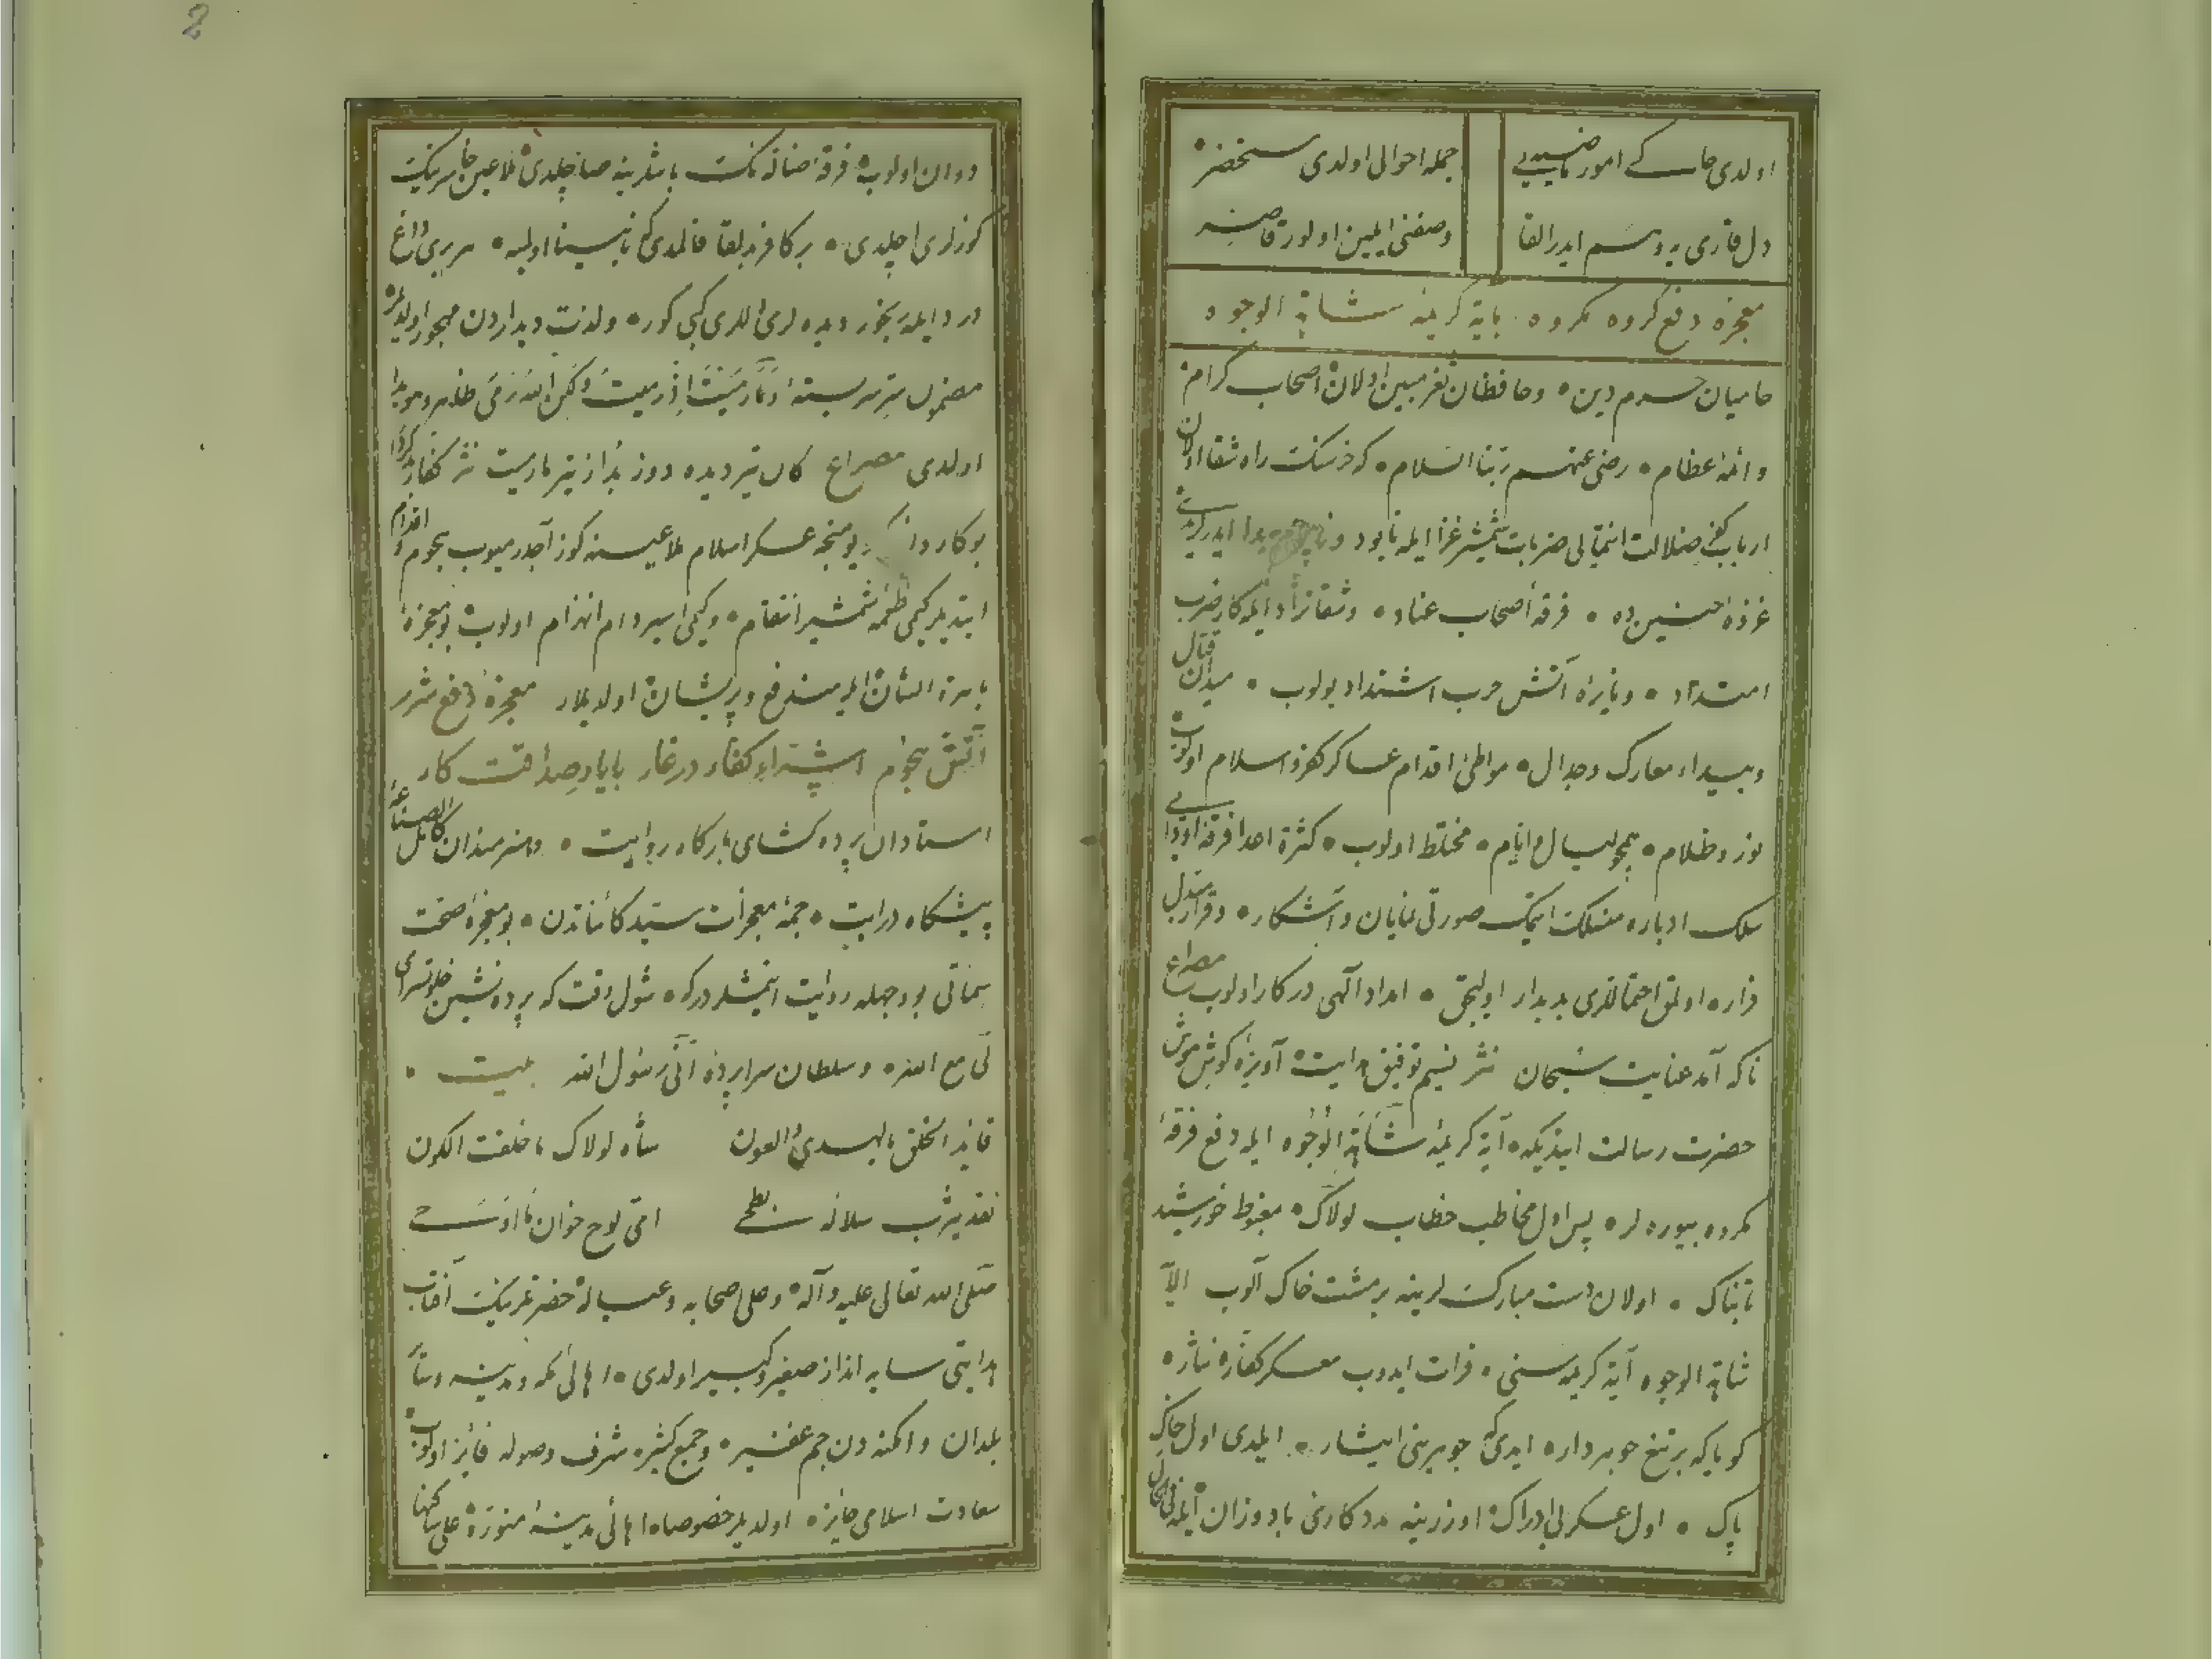 اولدی حاکم امور ماضیه یی جمله احوالی اولدی مستحضر
دل قازی یه وسم ایدر القا وصفنی ایلمین اولور قاصر
معجزه دفع کروه مکروه بایة کریمهٔ شاهت الوجوه
حامیان حرم دین و حافظان ثغر مبین اولان اصحاب کرام
و ائمهٔ عظام رضی عنهم ربنا السلام که خرسنک راه شقا اولان
ارباب کفر ضلالت انتمالی ضربات شمشیر غزا ایله نابود
غزوهٔ حنین ده فرقهٔ اصحاب عناد و شقا نژاد ایله کار ضرب
امتداد و نایرهٔ آتش حرب اشتداد بولوب میدان قتال
و بیداء معارک وجدال مواطئ اقدام عساکر کفر و اسلام اولوب
نور و ظلام همچو لیال و ایام مختلط اولوب کثرة اعدا فرقهٔ
سلک ادباره منسلک ایتمک صورتی نمایان و آشکار و قراری مبدل
فراره اولمق احتماللری بدیدار اولیجق امداد آلهی در کار اولوب مصراع
ناکه آمد عنایت سبحان نثر نسیم توفیق هدایت آویزهٔ کوش هوش
حضرت رسالت ایتدیکه آیة کریمهٔ شاهت الوجوه ایله دفع فرقهٔ
مکروه بیوره لر پس اول مخاطب خطاب لولاک مغبوط خورشید
تابناک اولان دست مبارکلرینه بر مشت خاک آلوب الآ
شاهت الوجوه آیة کریمه سنی قرات ایدوب معسکر کفاره نثاره
کویا که بر تیغ جوهرداره ایدی که جوهرینی ایثار ایلدی اول خاک
پاک اول عسکر بی ادراک اوزرینه مددکاری باد وزان ایله
دوان اولوب فرقهٔ ضاله نک باشرینه صاچلدی ملاعین خاسرینک
کوزلری اچلدی بر کافر بدلقا قالمدی که نابینا اولمیه هر بری داغ
درد ایله رنجور دیده لری اللری کبی کور و لذت دیداردن مهجور اولدیلر
مضمون سر سربستهٔ وَمَا رَمَيْتَ اِذْ رَمَيْتَ وَلكِنَّ اللّهَ رَمى ظاهر و هویدا
اولدی مصراع کان تیر دیده دوز بدا از تیر ما رمیت نثر کفار
بو کار بولیجق عسکر اسلام ملاعینه کوز آچدرمیوب هجوم و اقدام
ایتدیلر کیمی طعمهٔ شمشیر انتقام و کیمی اسیر دام انهزام اولوب بو معجزهٔ
باهرة الشان ایله مندفع و پریشان اولدیلار معجزهٔ دفع شرر
آتش هجوم اشتداء کفار در غار بایار صداقت کار
استادان پرده کشای بارکاه روایت و هنرمندان کامل الصناعهٔ
پیشکاه درایت جملهٔ معجزات سید کائناتدن بو معجزهٔ صحت
سماتی بو وجهله روایت ایتمشلردر که شول وقت که پرده نشین خلوتسرای
لی مع الله و سلطان سراپردهٔ انی رسول الله بیت
قاید الخلق بالهدی و العون شاه لولاک ما خلقت الکون
نقد یثرب سلالهٔ بطحی امی لوح خوان ما اوحی
صلی الله تعالی علیه و آله و علی صحابه و عیاله حضرتلرینک آفتاب
هدایتی سایه انداز صغیر و کبیر اولدی اهالئ مکه و مدینه و سائر
بلدان و امکنه دن جم غفیر و جمع کثیر شرف وصوله فائز اولوب
سعادت اسلامی حایز اولدیلر خصوصا اهالئ مدینهٔ منوره علی ساکنها